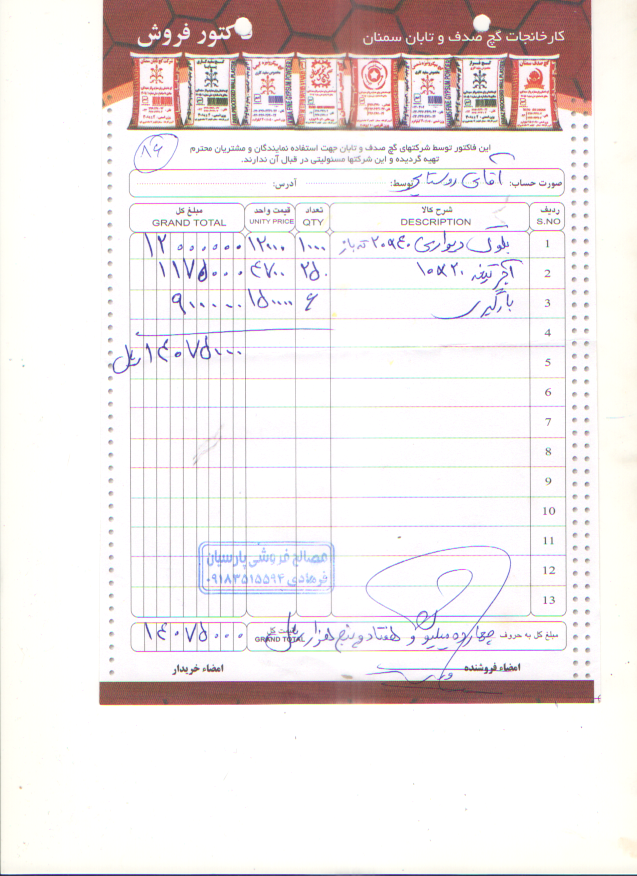 کارخانجات گچ صدف و تابان سمنان
فاکتور فروش
این فاکتور توسط شرکتهای گچ صدف و تابان جهت استفاده نمایندگان و مشتریان محترم
تهیه گردیده و این شرکتها مسئولیتی در قبال آن ندارند.
۸۶
صورت حساب: آقای روستایی توسط: آدرس:
ردیف شرح کالا تعداد قیمت واحد مبلغ کل
S.NO DESCRIPTION QTY UNITY PRICE GRAND TOTAL
1 بلوک دیواری ۲۰*۴۰ ته باز ۱۰۰۰ ۱۲۰۰۰ ۱۲۰۰۰۰۰۰
2 آجر تیغه ۲۰*۱۰ ۲۵۰ ۴۷۰۰ ۱۱۷۵۰۰۰
3 بارگیری ۶ ۱۵۰۰۰۰ ۹۰۰۰۰۰
4
5 ۱۴۰۷۵۰۰۰ ریال
6
7
8
9
10
11
12
13
مصالح فروشی پارسیان
فرهادی ۰۹۱۸۳۵۱۵۵۹۴
مبلغ کل به حروف چهارده میلیون و هفتاد و پنج هزار ریال قیمت کل GRAND TOTAL ۱۴۰۷۵۰۰۰
امضاء فروشنده امضاء خریدار